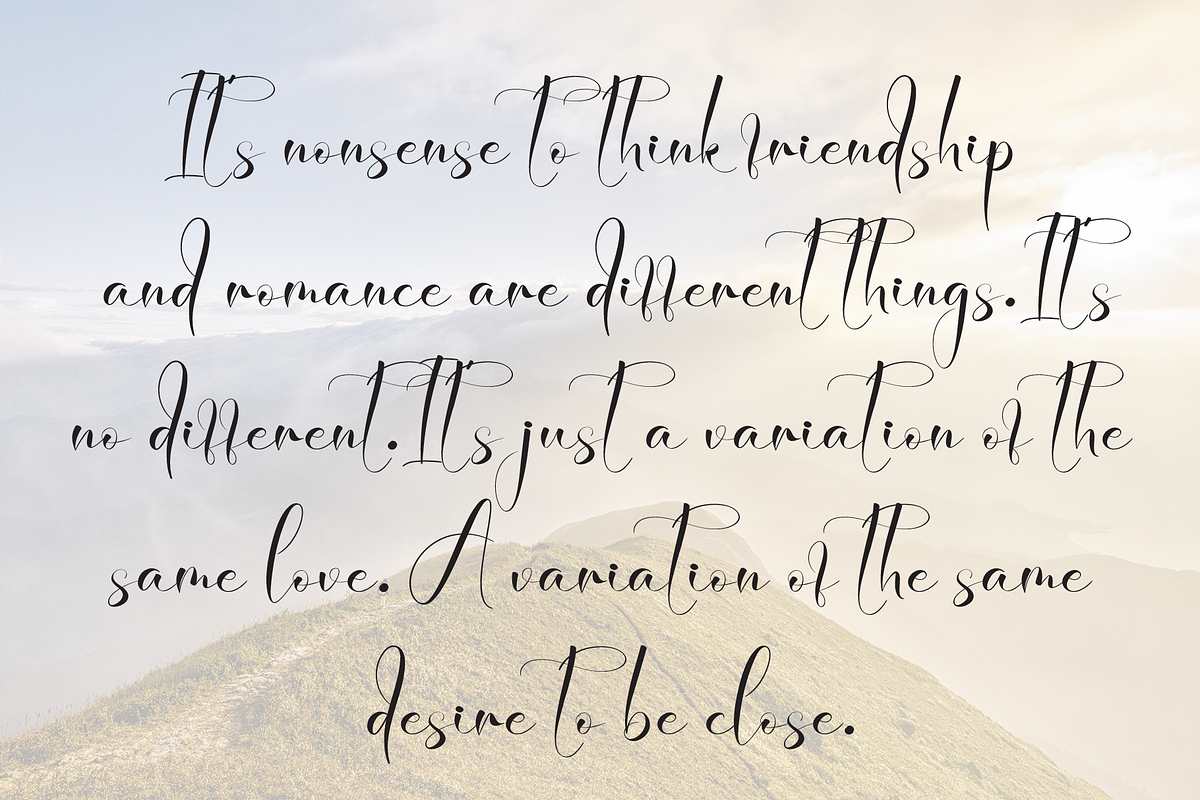 It's nonsense to think friendship
and romance are different things. It's
no different. It's just a variation of the
same love. A variation of the same
desire to be close.